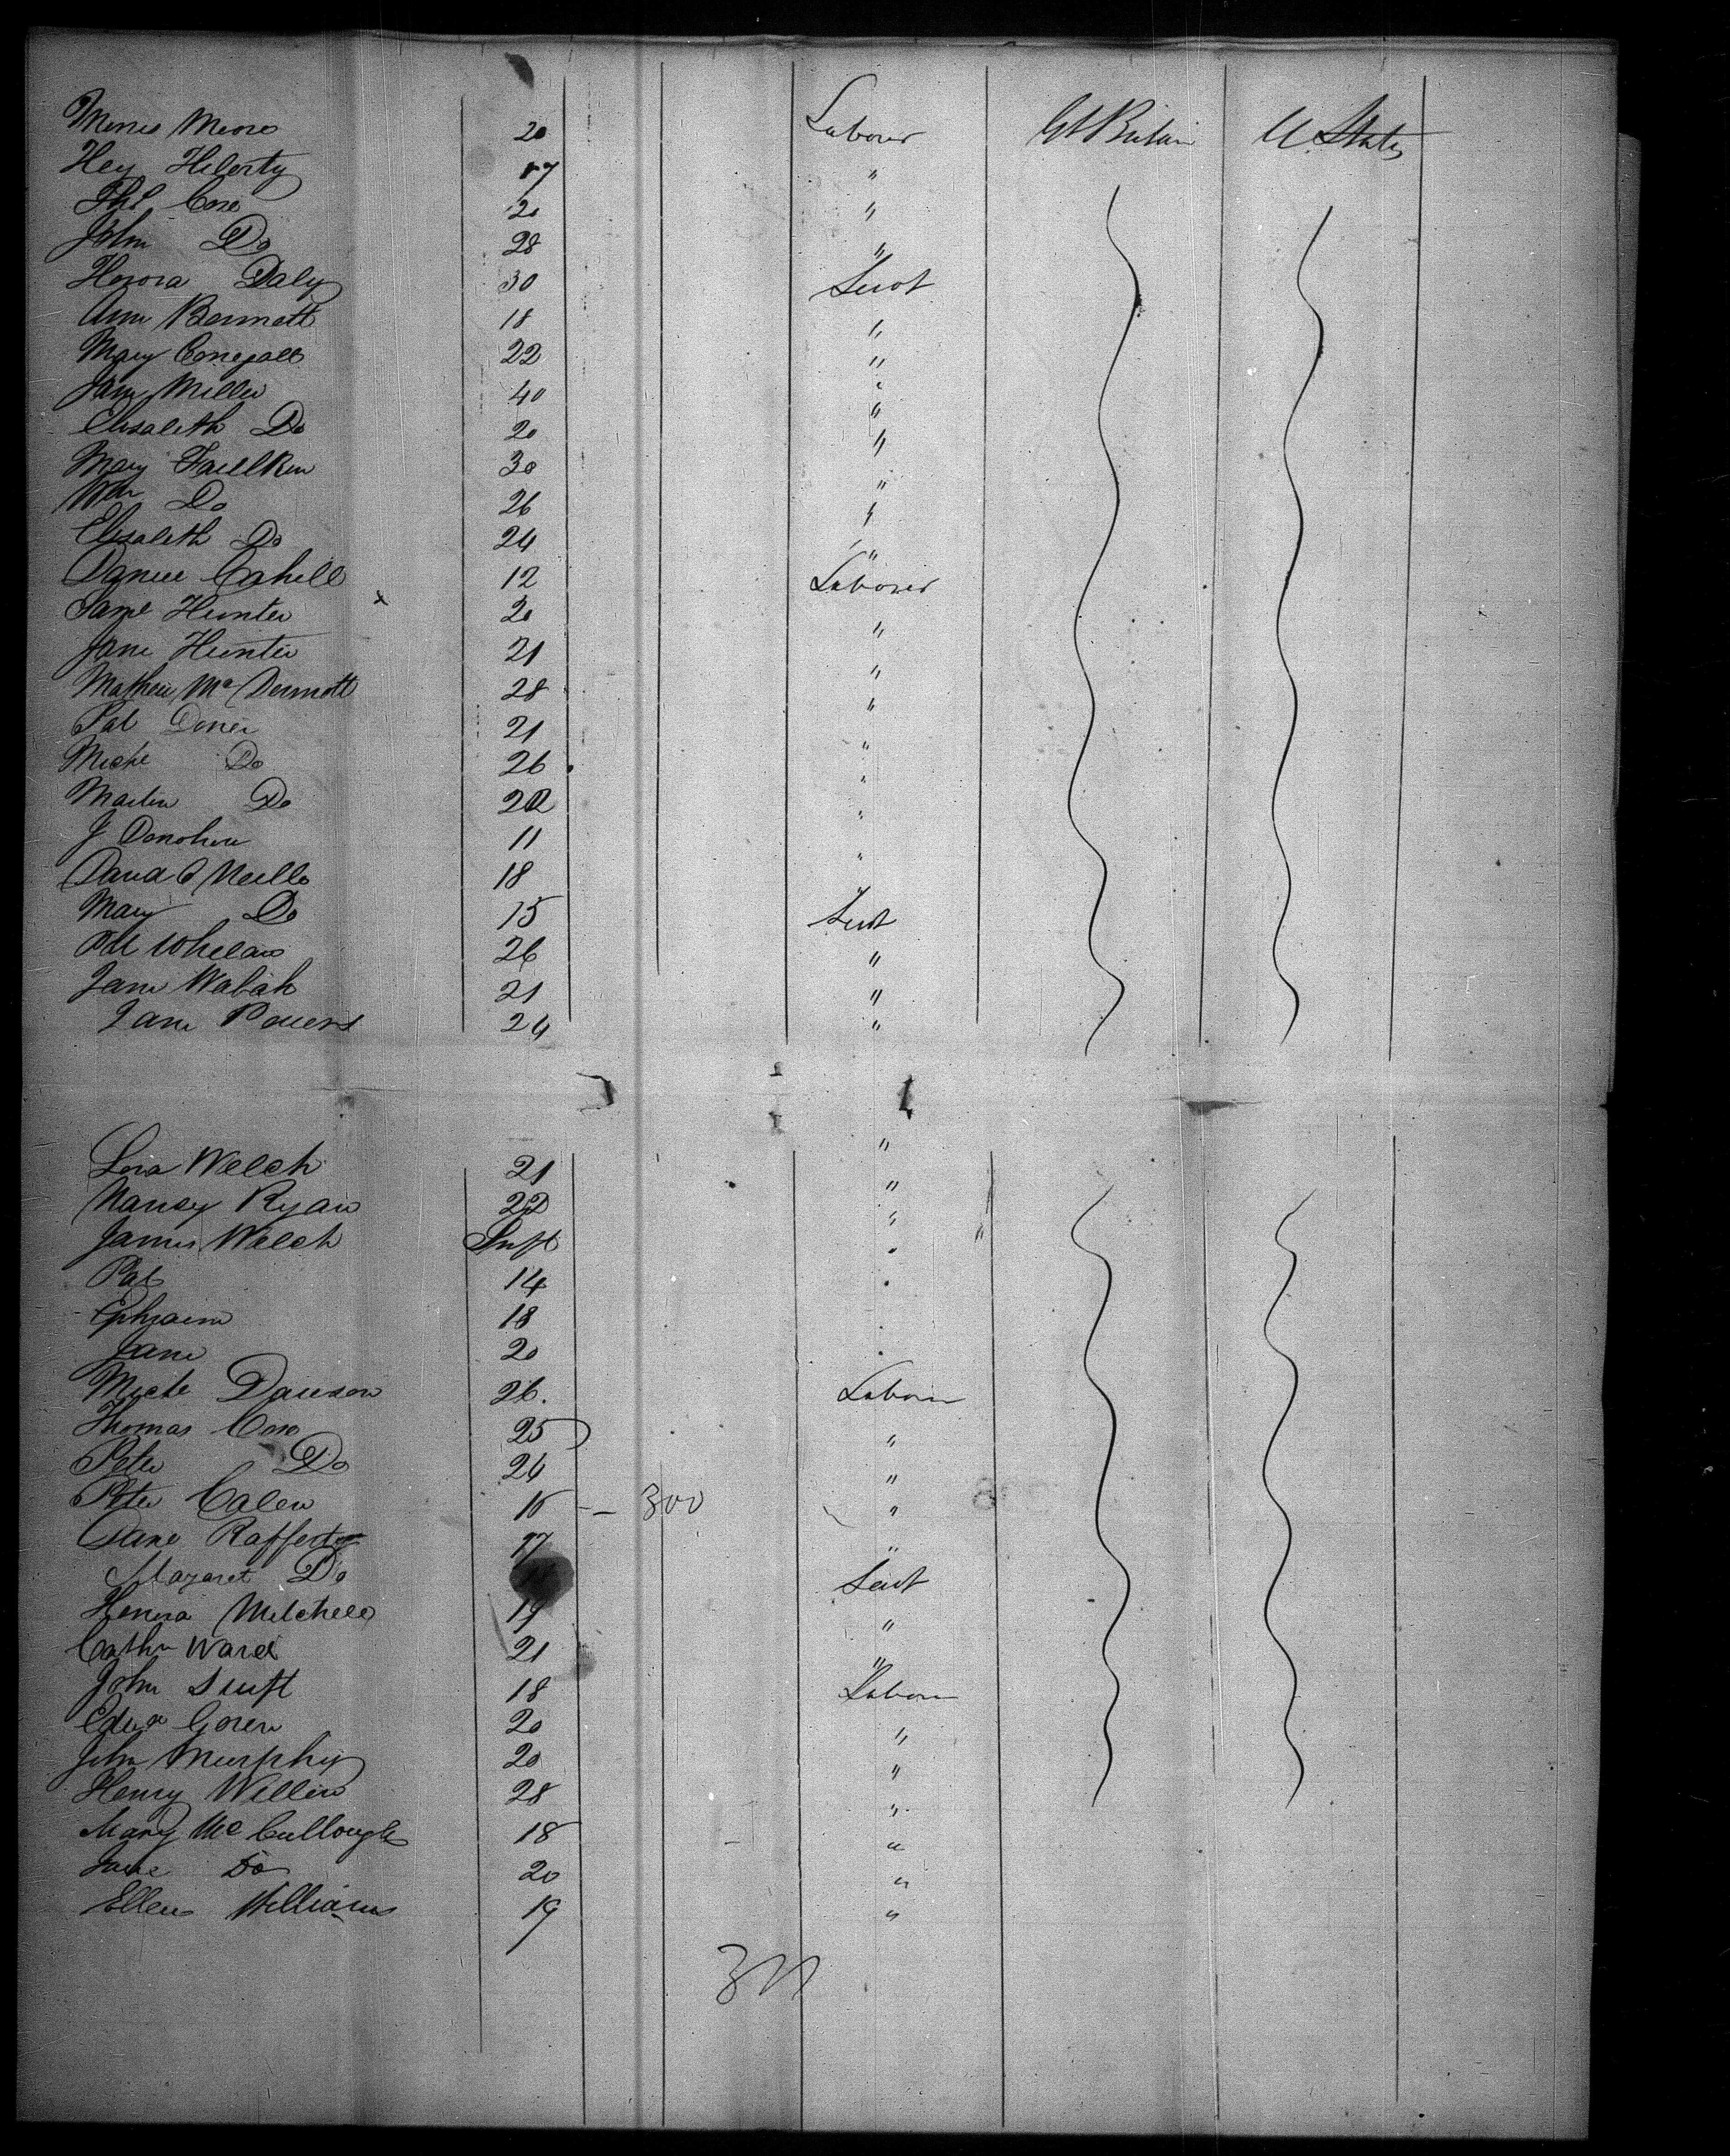 Moore 20 Laborer Gt Britain U States
Hey Hilerty 17 "
Thos Cone 20 "
John Do 28 "
Honora Daly 30 Servt
Ann Bennett 18 "
Mary 22 "
Jane Miller 40 "
Elisabeth Do 20 "
Mary Faulkner 30 "
Wm Do 26 "
Elisabeth Do 24 "
Daniel Cahill 12 Laborer
Jane Hunter 20 "
Jane Hunter 21 "
Mathew Mc Dermott 28 "
Pat 21 "
Michl Do 26 "
Martin Do 22 "
J Donohue 11 "
David O Neill 18 "
Mary Do 15 Servt
Whelan 26 "
Jane Walsh 21 "
Jane Powers 24 "
Welch 21 "
Nancy Ryan 22 "
James Welch Inft "
Pat 14 "
Ephraim 18 "
Jane 20 "
Michl Dawson 26 Laborer
Thomas Cone 25 "
Peter Do 24 "
Peter Calen 16 300 "
Rafferty 17 "
Margaret Do Servt
Honora Mitchell 19 "
Cathn Ward 21 "
John Swift 18 Laborer
20 "
John Murphy 20 "
Henry Willin 28 "
Mary Mc Cullough 18 "
Jane Do 20 "
Ellen Williams 19 "
311